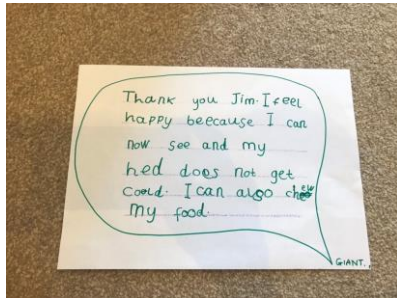 Thank you Jim. I feel
happy beecause I can
now see and my
hed does not get
coold. I can also chew
my food.
GIANT.